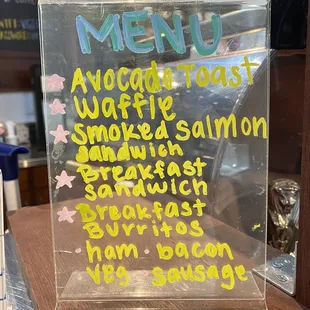 MENU
Avocado Toast
Waffle
Smoked Salmon
sandwich
Breakfast
sandwich
Breakfast
Burritos
ham · bacon
veg sausage